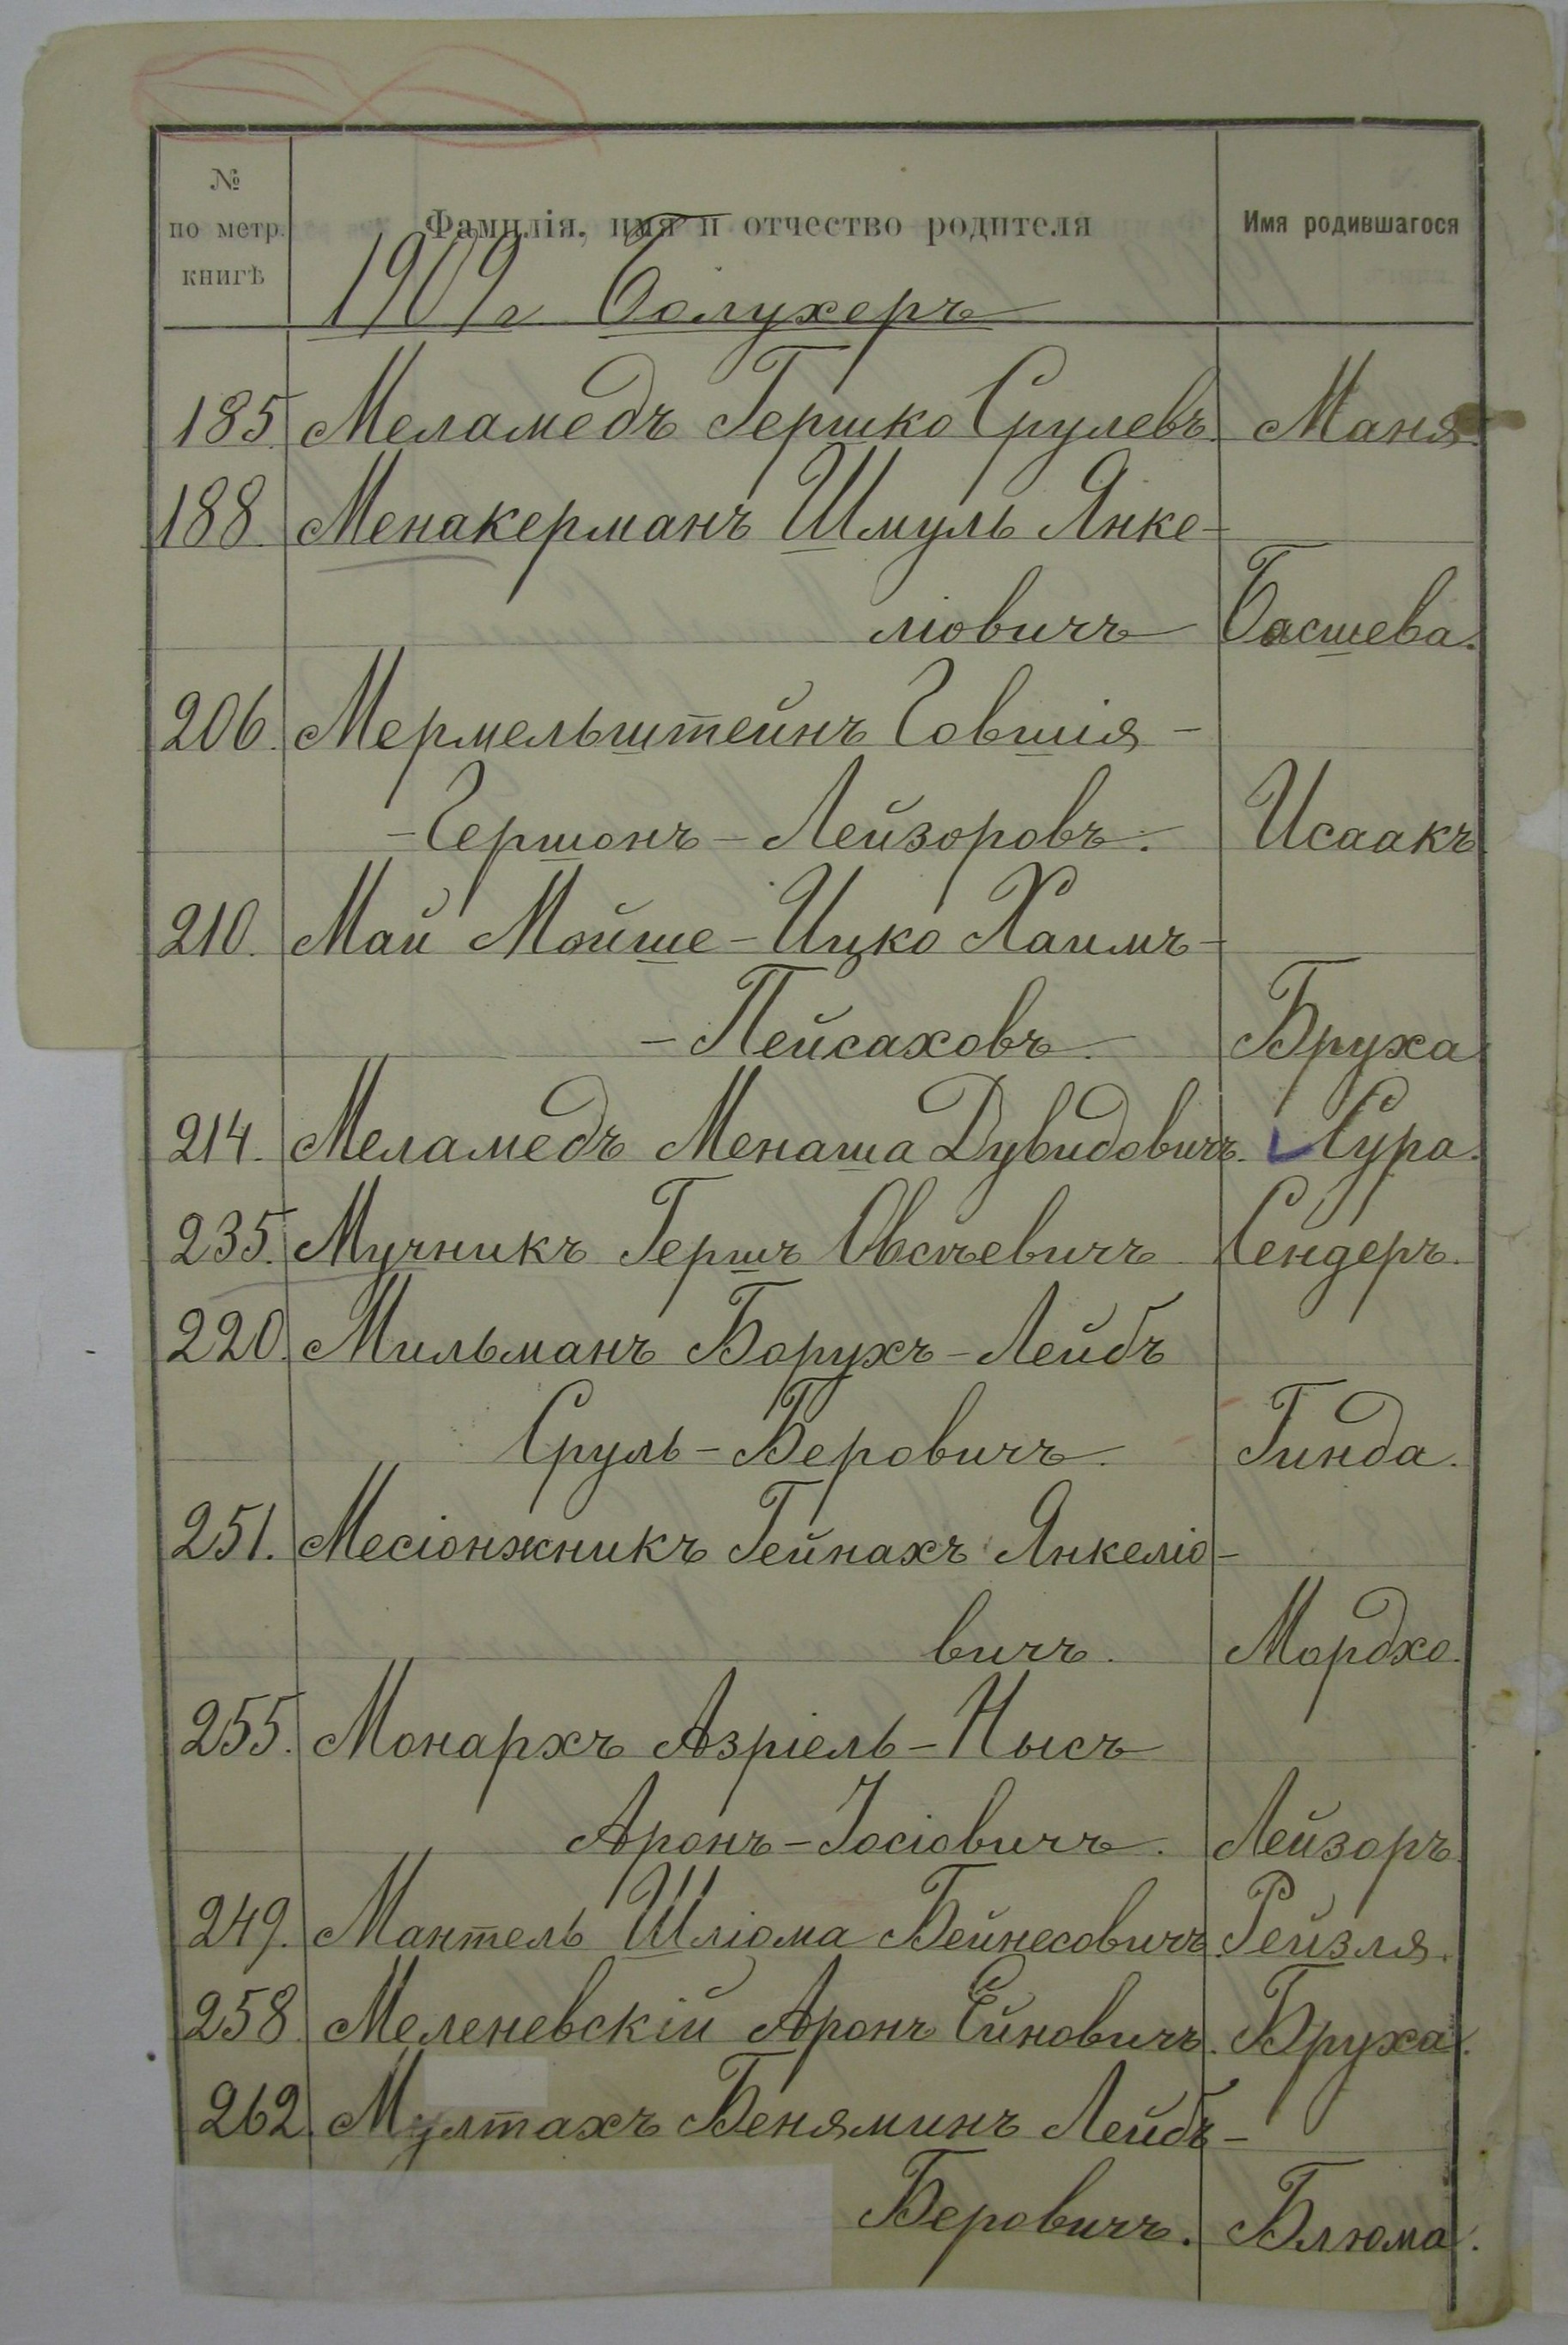 № по метр. книгѣ Фамилія, имя и отчество родителя Имя родившагося
1909 г Болухеръ
185. Меламедъ Гершко Срулевъ. Маня.
188. Менакерманъ Шмуль Янке-
ліовичъ Басшева.
206. Мермельштейнъ Говшія-
-Гершонъ-Лейзоровъ. Исаакъ.
210. Май Мойше-Ицко Хаимъ-
-Пейсаховъ. Бруха
214. Меламедъ Менаша Дувидовичъ. Сура.
235. Мучникъ Гершъ Овсѣевичъ Сендеръ.
220. Мильманъ Борухъ-Лейбъ
Сруль-Беровичъ. Гинда.
251. Месіонжникъ Гейнахъ Янкеліо-
вичъ. Мордко.
255. Монархъ Азріель-Нысъ
Аронъ-Іосіовичъ. Лейзоръ.
249. Мантель Шліома Бейнесовичъ. Рейзля.
258. Меленевскій Аронъ Ейновичъ. Бруха.
262. Мултахъ Беняминъ Лейбъ-
Беровичъ. Блюма.